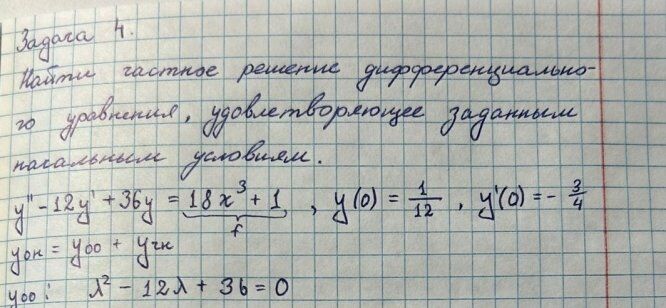 Задача 4.
Найти частное решение дифференциально-
го уравнения, удовлетворяющее заданным
начальным условиям.
y'' - 12y' + 36y = 18x³ + 1 , y(0) = 1/12 , y'(0) = - 3/4
f
yон = yоо + yчн
yоо: λ² - 12λ + 36 = 0